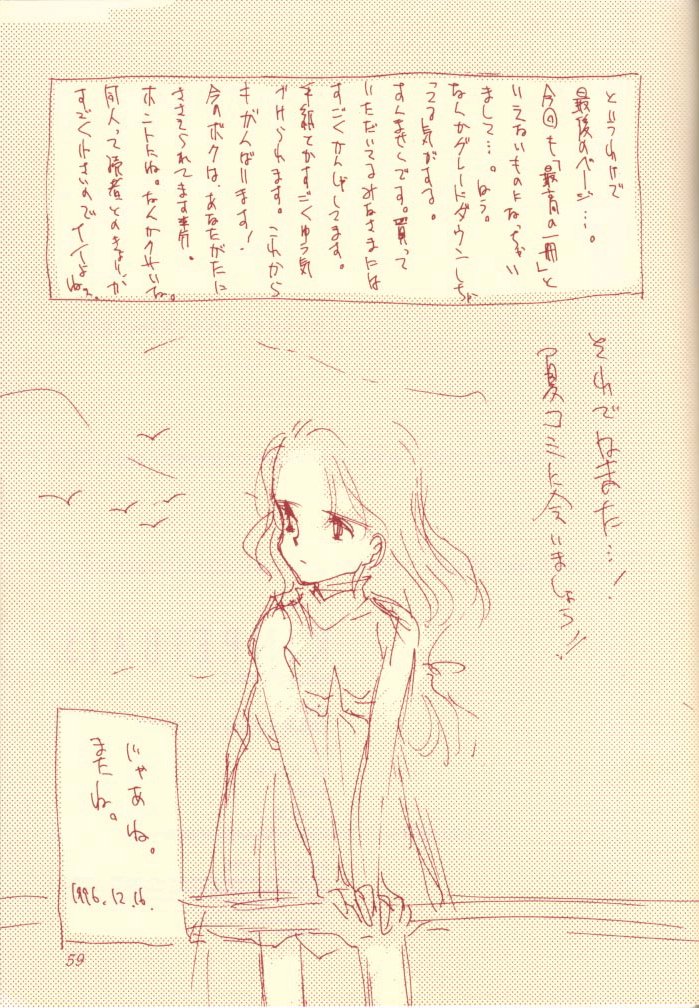 というわけで
最後のページ…。
今回も「最高の一冊」と
いえないものになっちゃい
まして…。はう。
なんかグレードダウンしちゃ
ってる気がする。
すんませんです。買って
いただいてるみなさまには
すごくかんしゃしてます。
手紙でかすごくゆう気
づけられます。これから
もがんばります!
今のボクは、あなたがたに
ささえられてます。
ホントだね。なんかクサいな。
同人って読者とのきょりが
すごく小さいのでイイよねぇ。
それではまた…!
夏コミに会いましょう!!
じゃあね。
またね。
1996.12.16.
59